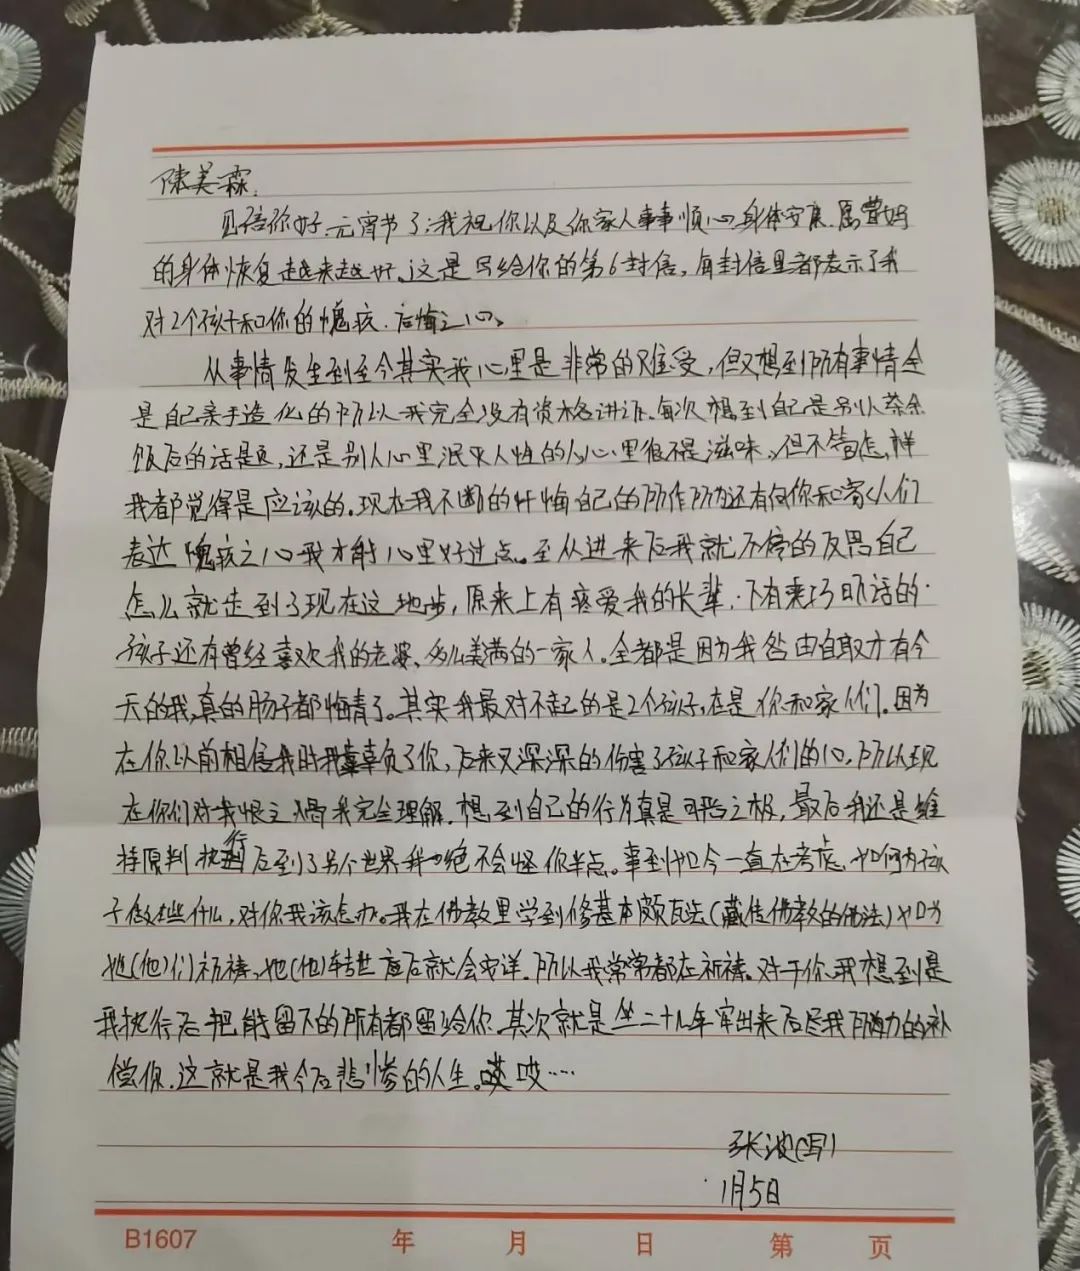 陈美霖:
见信你好,元宵节了,我祝你以及你家人事事顺心,身体安康.愿曹妈
的身体恢复越来越好。这是写给你的第6封信,每封信里都表示了我
对2个孩子和你的愧疚.后悔之心。
从事情发生到至今其实我心里是非常的难受,但又想到所有事情全
是自己亲手造化的所以我完全没有资格讲诉。每次想到自己是别人茶余
饭后的话是,还是别人心里泯灭人性的人心里很不是滋味。但不管怎样
我都觉得是应该的.现在我不断的忏悔自己的所作所为还有向你和家人们
表达愧疚之心我才能心里好过点。至从进来后我就不停的反思自己
怎么就走到了现在这地步,原来上有疼爱我的长辈.下有乘巧听话的
孩子还有曾经喜欢我的老婆、多么美满的一家人。全都是因为我咎由自取才有今
天的我,真的肠子都悔青了。其实我最对不起的是2个孩子,在是你和家人们.因为
在你以前相信我时我辜负了你,后来又深深的伤害了孩子和家人们的心.所以现
在你们对我恨之 我完全理解.想到自己的行为真是可恶之极,最后我还是维
持原判执行后到了另个世界我也绝不会怪你半点。事到如今一直在考虑.如何为孩
子做些什么,对你我该怎办。我在佛教里学到修基本颇瓦法(藏传佛教的佛法)如为
她(他)们祈祷.她(他)转世 后就会安详.所以我常常都在祈祷.对于你.我想到是
我执行后把能留下的所有都留给你.其次就是坐二十几年牢出来后尽我所能力的补
偿你.这就是我今后悲惨的人生。哎哎……
张波(写)
1月5日
B1607 年 月 日 第 页